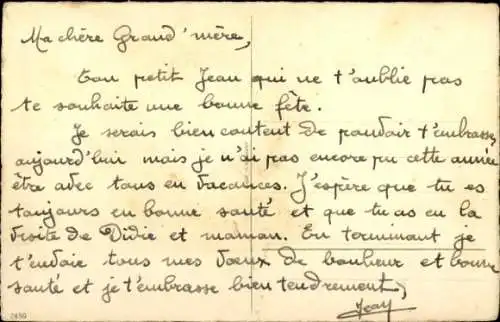 Ma chère Grand'mère,
Ton petit Jean qui ne t'oublie pas
te souhaite une bonne fête.
Je serais bien content de pouvoir t'embrasser
aujourd'hui mais je n'ai pas encore pu cette année
être avec tous en vacances. J'espère que tu es
toujours en bonne santé et que tu as eu la
visite de Didie et maman. En terminant je
t'envoie tous mes vœux de bonheur et bonne
santé et je t'embrasse bien tendrement,
Jean